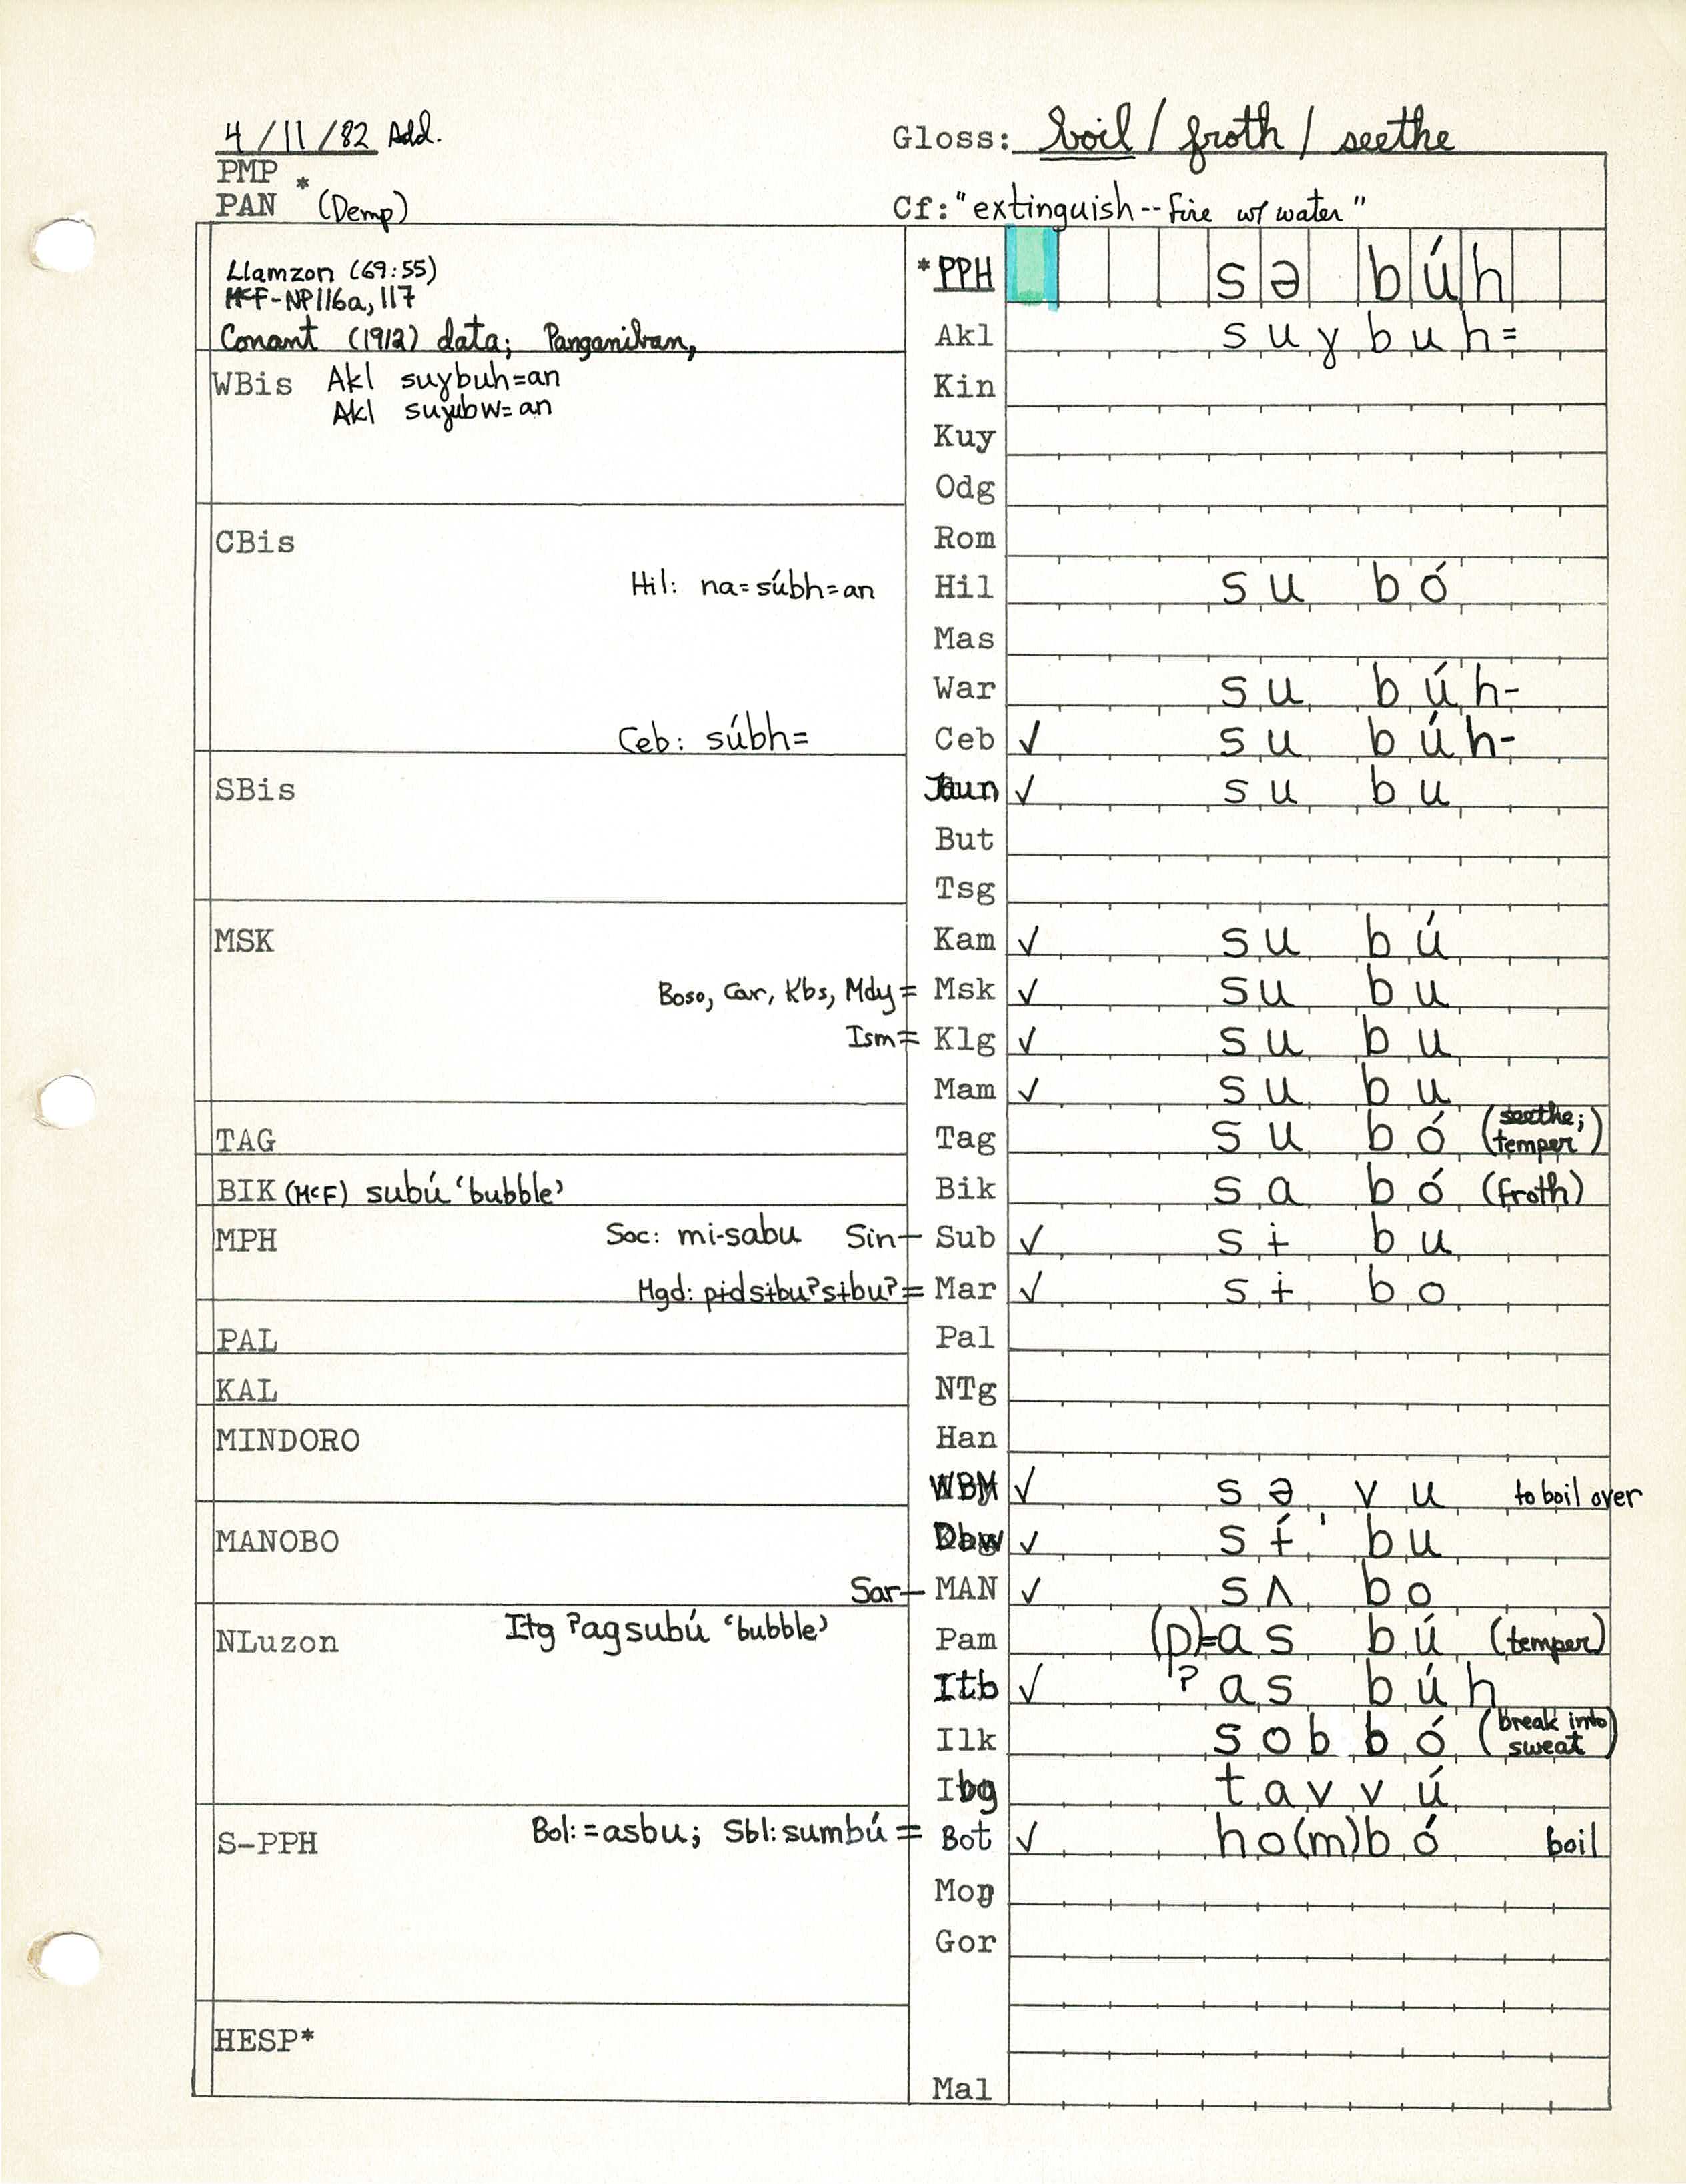 4/11/82 Add.
Gloss: boil / froth / seethe
PMP
PAN * (Demp)
Cf: "extinguish -- fire w/ water"
Llamzon (69:55)
McF-NP116a, 117
Conant (1912) data; Panganiban,
*PPH sə búh
Akl suɣbuh=
WBis Akl suɣbuh=an
Akl suɣubw=an
Kin
Kuy
Odg
CBis
Rom
Hil: na=súbh=an Hil su bó
Mas
War su búh-
Ceb: súbh= Ceb ✓ su búh-
SBis Jaun ✓ su bu
But
Tsg
MSK Kam ✓ su bú
Boso, Car, Kbs, Mdy = Msk ✓ su bu
Ism = Klg ✓ su bu
Mam ✓ su bu
TAG Tag su bó (seethe; temper)
BIK (McF) subú 'bubble' Bik sa bó (froth)
MPH Soc: mi-sabu Sin- Sub ✓ sɨ bu
Mgd: pɨdsɨbu?sɨbu? = Mar ✓ sɨ bo
PAL Pal
KAL NTg
MINDORO Han
WBM ✓ sə vu to boil over
MANOBO Dbw ✓ sɨ́' bu
Sar- MAN ✓ sʌ bo
NLuzon Itg ?agsubú 'bubble' Pam (p)=as bú (temper)
Itb ✓ ?as búh
Ilk sobbó (break into sweat)
Ibg tavvú
S-PPH Bol: =asbu; Sbl: sumbú = Bot ✓ ho(m)bó boil
Mog
Gor
HESP*
Mal